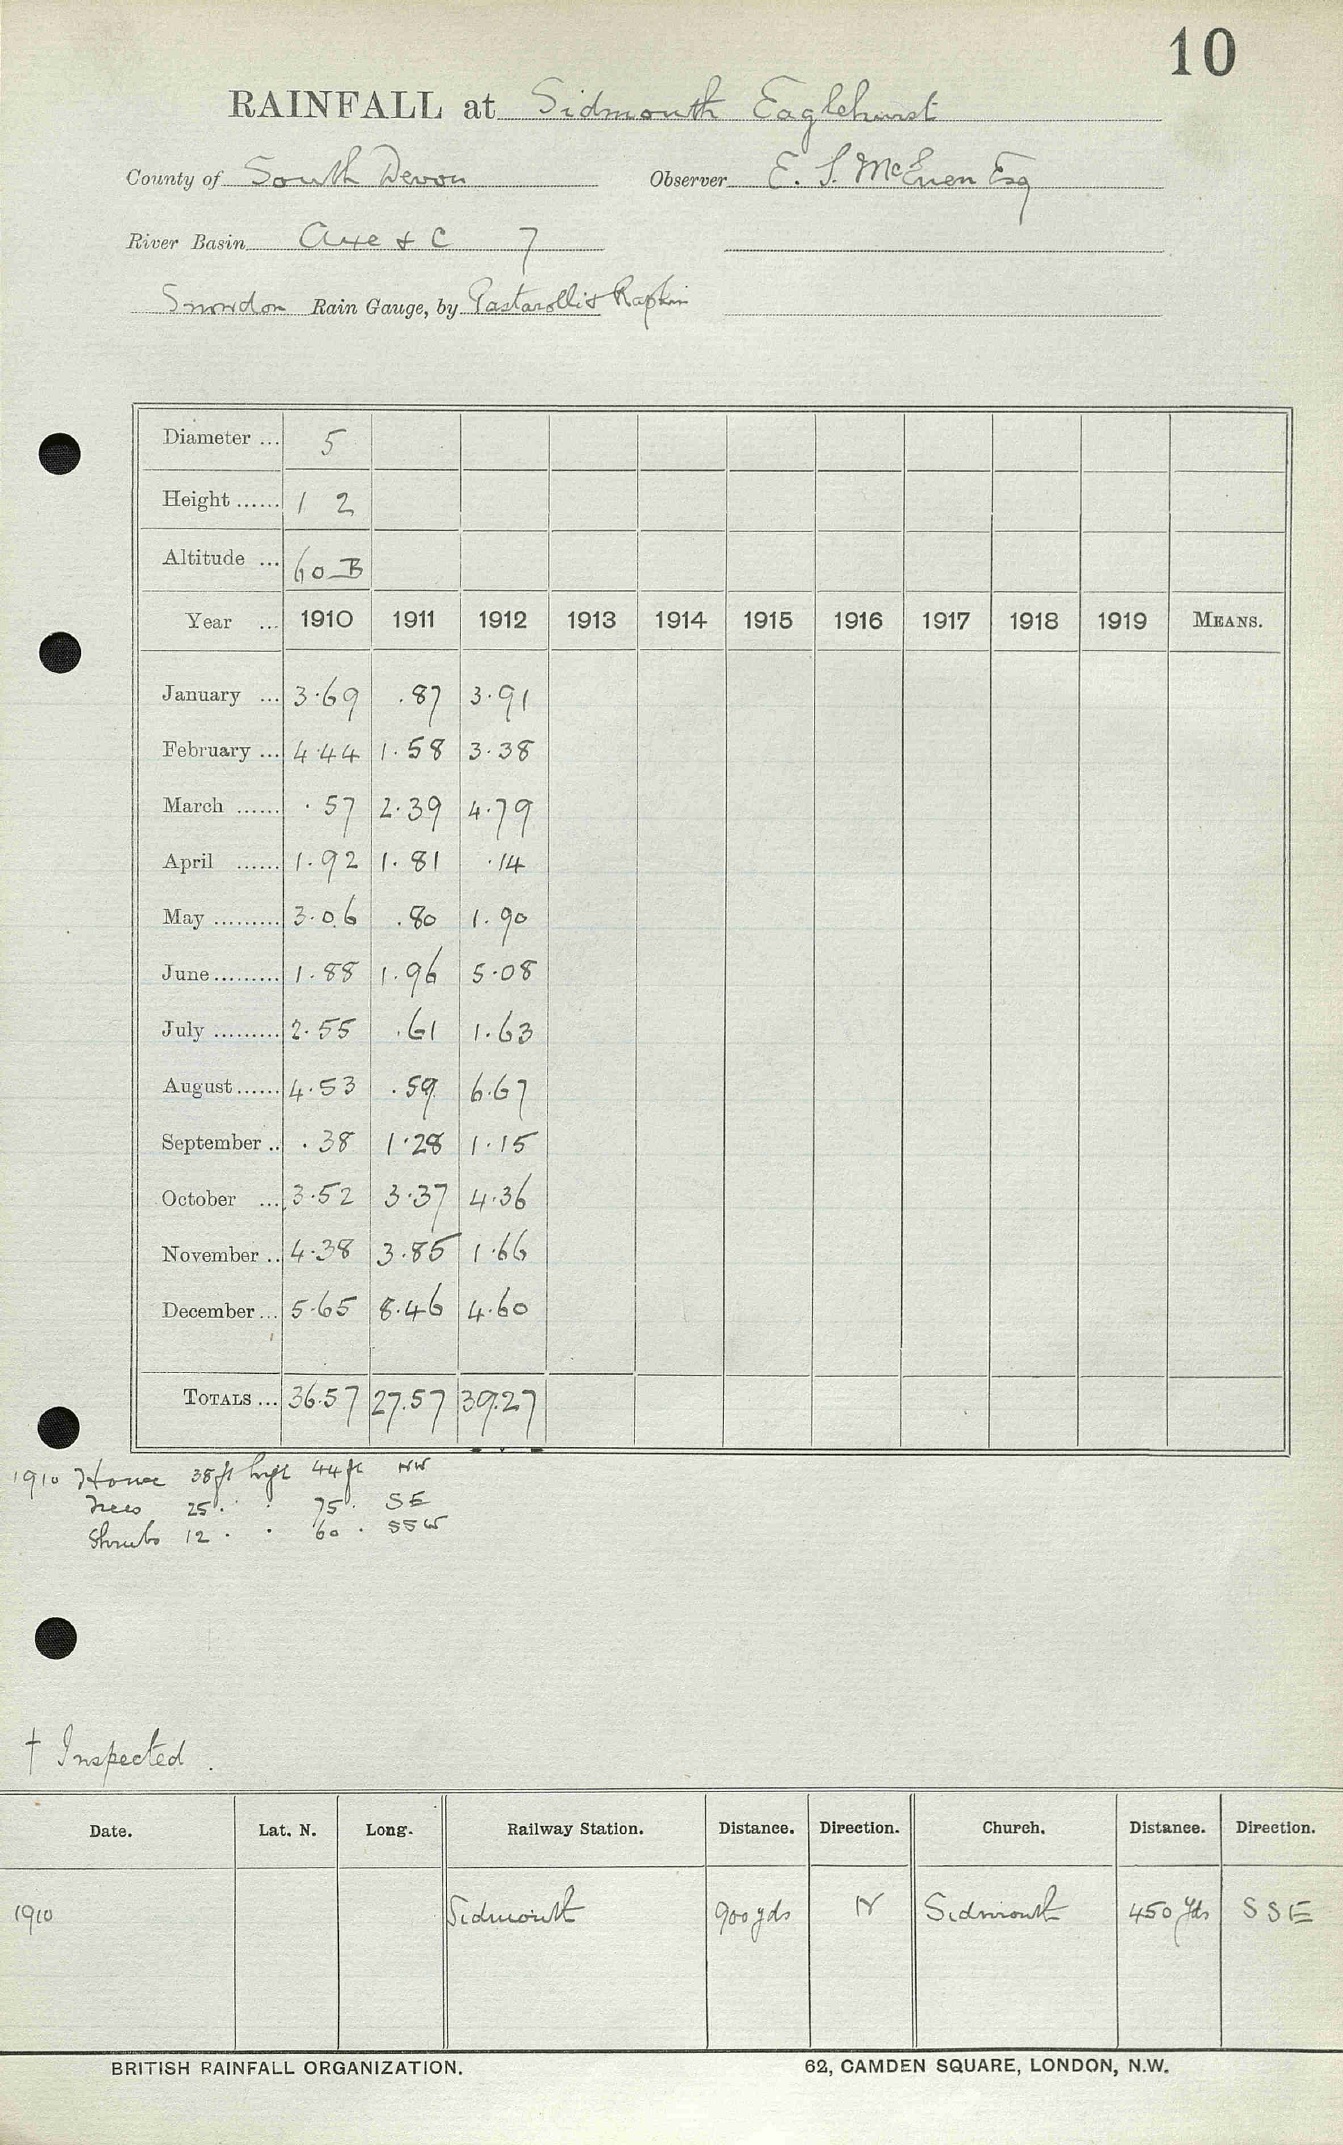 10
RAINFALL at Sidmouth Eaglehurst
County of South Devon Observer E. S. McEuen Esq
River Basin Axe & C 7
Snowdon Rain Gauge, by Pastorelli & Rapkin
Diameter ... 5
Height ...... 1 2
Altitude ... 60 B
Year ... 1910 1911 1912 1913 1914 1915 1916 1917 1918 1919 MEANS.
January ... 3.69 .87 3.91
February ... 4.44 1.58 3.38
March ...... .57 2.39 4.79
April ...... 1.92 1.81 .14
May ......... 3.06 .80 1.90
June ......... 1.88 1.96 5.08
July ......... 2.55 .61 1.63
August ...... 4.53 .59 6.67
September .. .38 1.28 1.15
October ... 3.52 3.37 4.36
November .. 4.38 3.85 1.66
December ... 5.65 8.46 4.60
TOTALS ... 36.57 27.57 39.27
1910 House 38 ft high 44 ft NW
Trees 25 . . 75 . SE
Shrubs 12 . . 60 . SSW
† Inspected.
Date. Lat. N. Long. Railway Station. Distance. Direction. Church. Distance. Direction.
1910 Sidmouth 900 yds N Sidmouth 450 yds SSE
BRITISH RAINFALL ORGANIZATION. 62, CAMDEN SQUARE, LONDON, N.W.